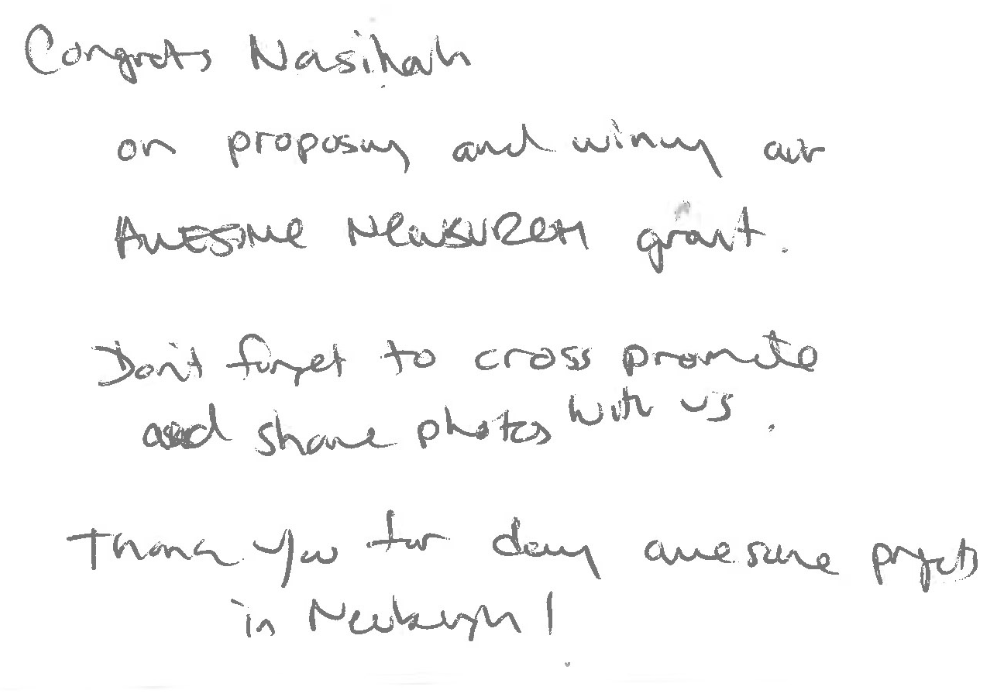 Congrats Nasihah
on proposing and wining our
AWESOME NEWBURGH grant.
Don't forget to cross promote
and share photos with us.
Thank you for doing awesome projects
in Newburgh!